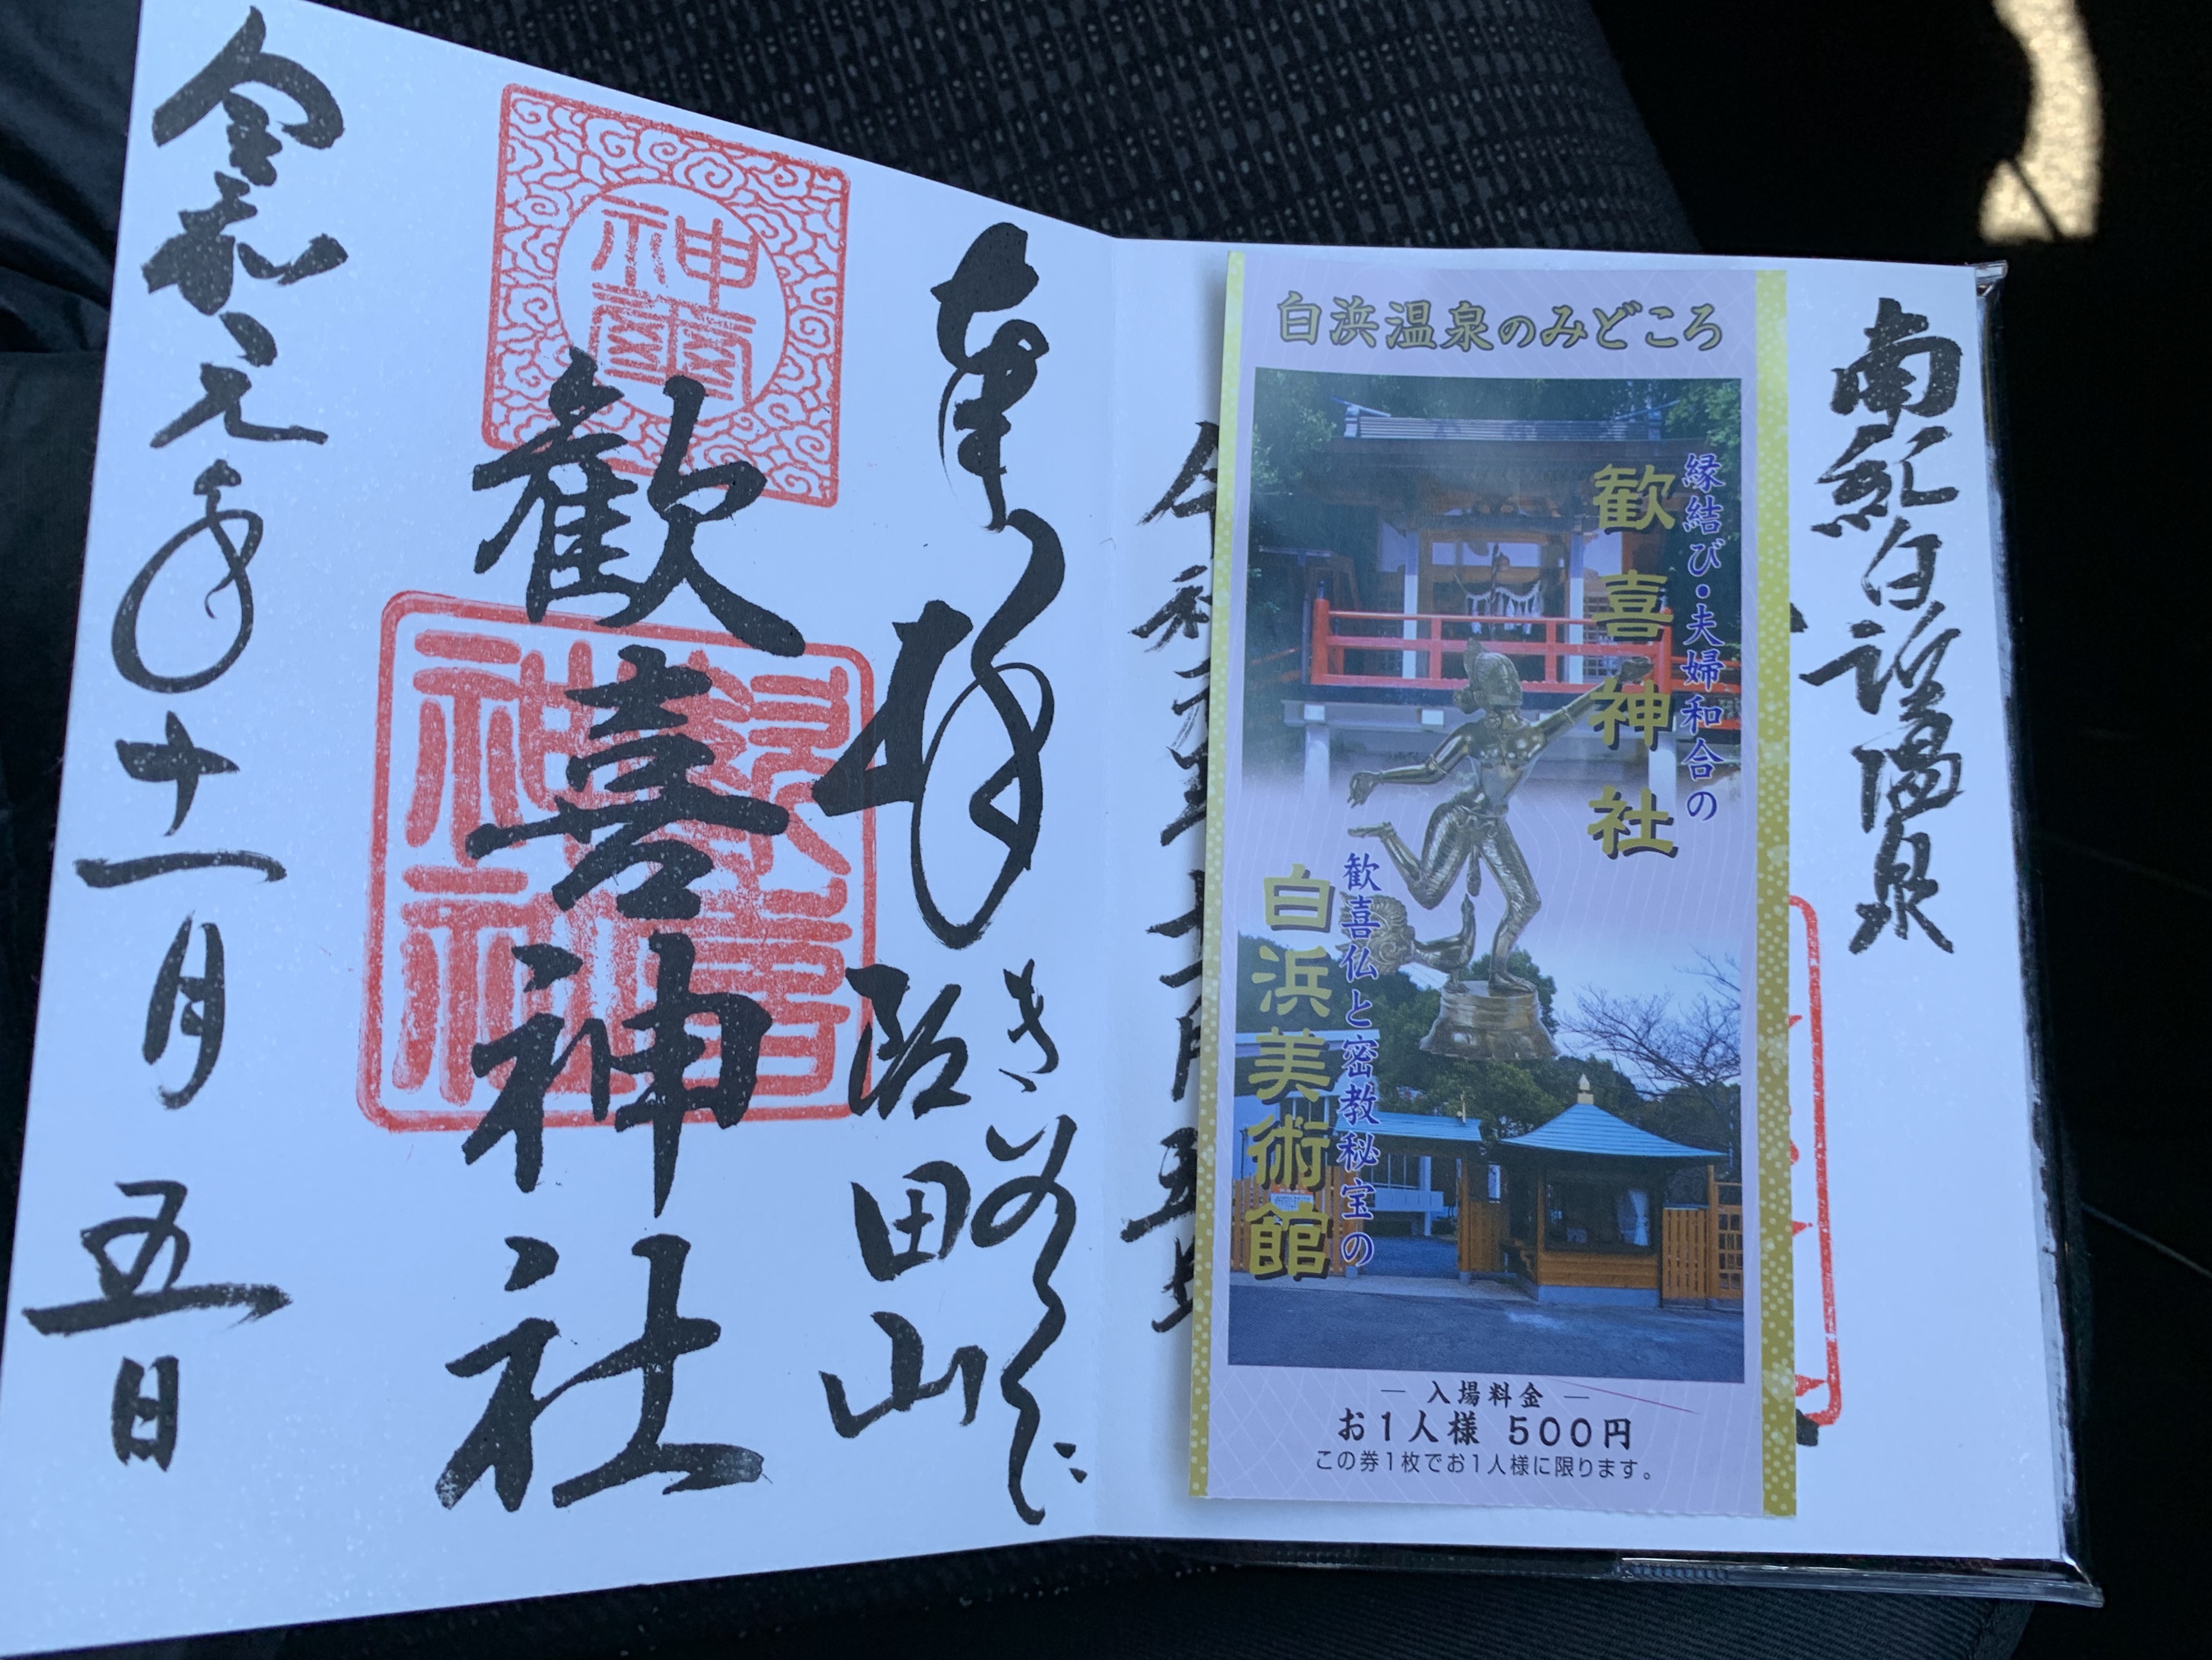 南紀白浜温泉
白浜温泉のみどころ
縁結び・夫婦和合の
歓喜神社
歓喜仏と密教秘宝の
白浜美術館
― 入場料金 ―
お1人様 500円
この券1枚でお1人様に限ります。
奉拝
阪田山
神璽
歓喜神社
歓喜神社
令和元年十一月五日